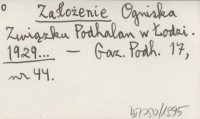 Założenie Ogniska
Związku Podhalan w Łodzi.
1929... — Gaz. Podh. 17,
nr 44.